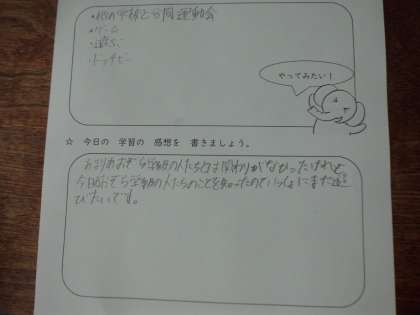 ・他の学校と合同運動会
・ゲーム
・遊ぶ
・ドッチビー
やってみたい！
☆ 今日の 学習の 感想を 書きましょう。
あまりあおぞら学級の人たちとは関わりがなかったけれど
今日あおぞら学級の人たちのことを知ったのでいっしょにまた遊
びたいです。